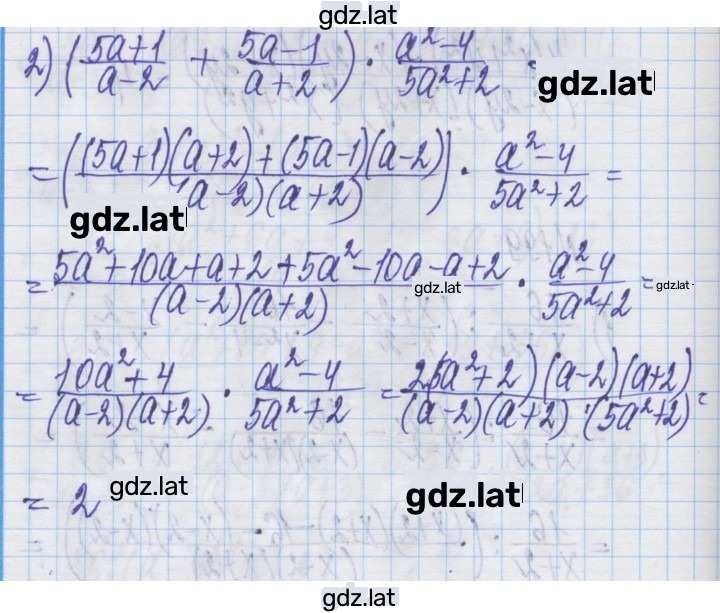 gdz.lat
2) ((5a+1)/(a-2) + (5a-1)/(a+2)) · (a²-4)/(5a²+2) gdz.lat
= (((5a+1)(a+2)+(5a-1)(a-2))/((a-2)(a+2))) · (a²-4)/(5a²+2) =
gdz.lat
= (5a²+10a+a+2+5a²-10a-a+2)/((a-2)(a+2)) · (a²-4)/(5a²+2) = gdz.lat
gdz.lat
= (10a²+4)/((a-2)(a+2)) · (a²-4)/(5a²+2) = (2(5a²+2)(a-2)(a+2))/((a-2)(a+2)·(5a²+2)) =
= 2 gdz.lat gdz.lat
gdz.lat